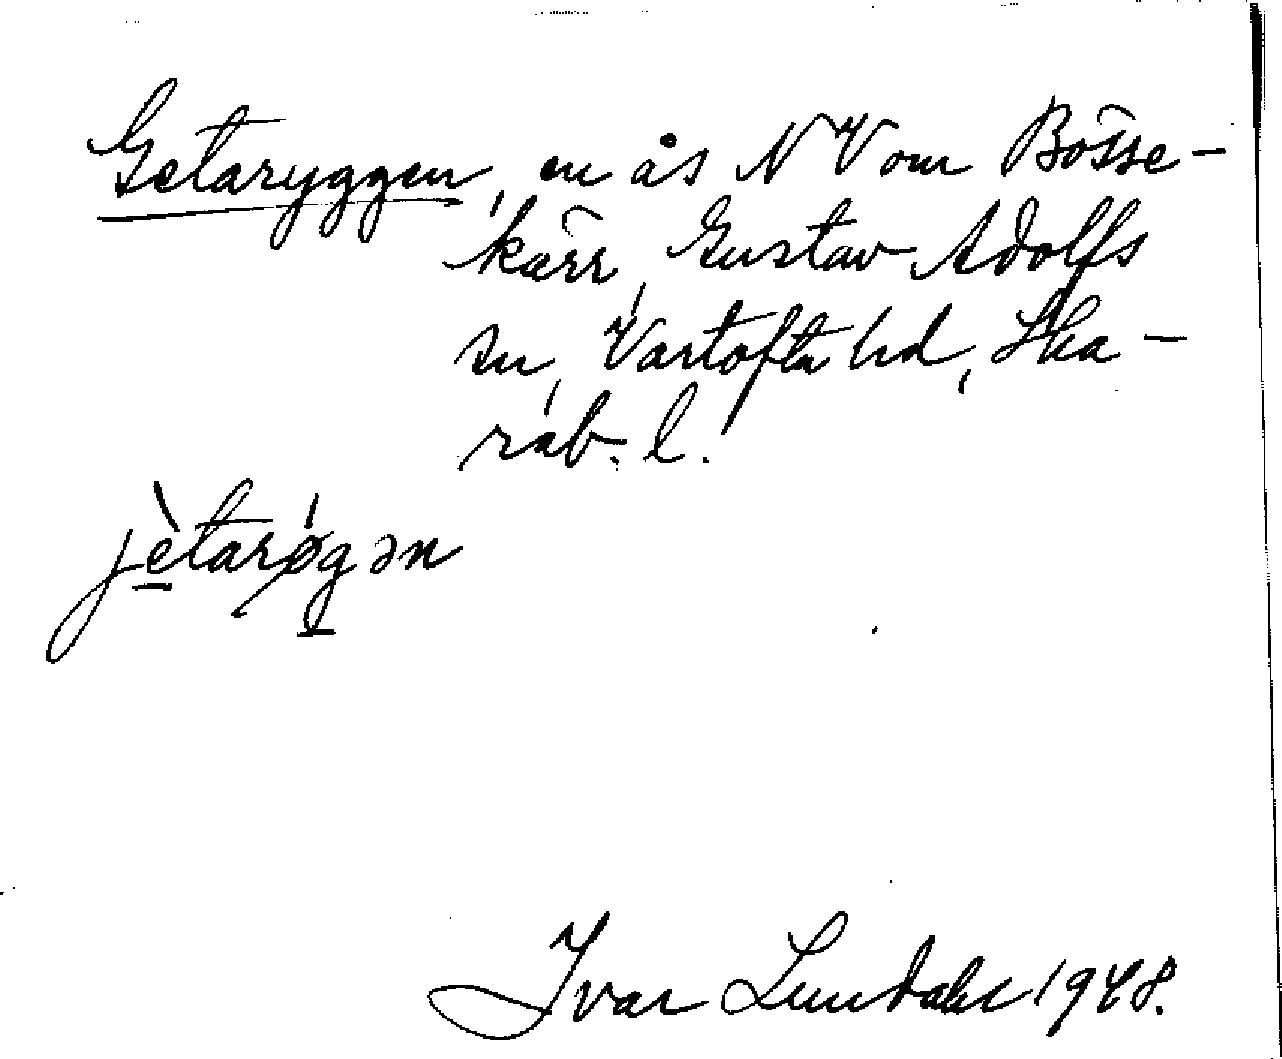 Getaryggen, en ås NV om Bösse-
kärr, Gustav Adolfs
sn, Vartofta hd, Ska-
rab. l.
jètarøgən
Ivar Lundahl 1948.